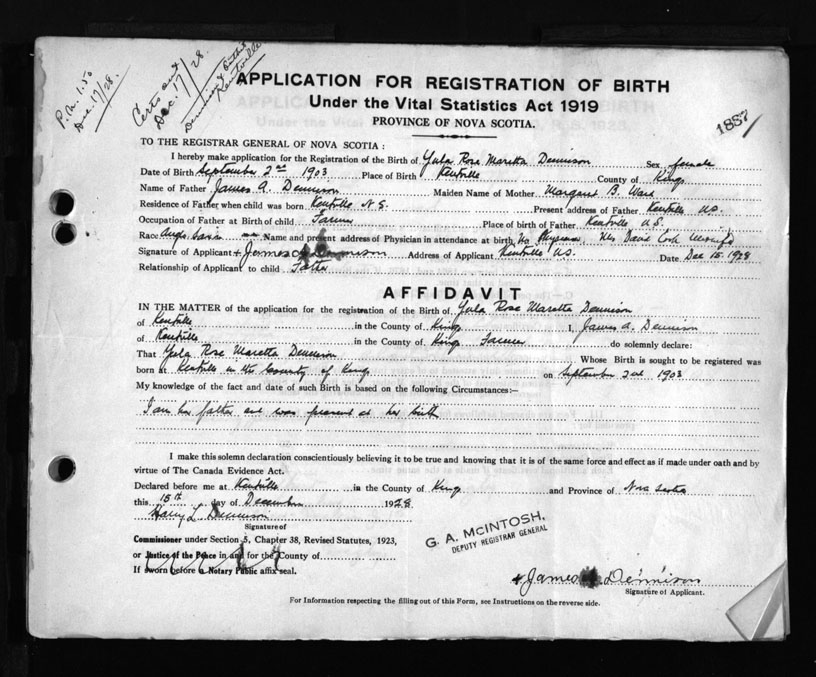 P.M. 1.50
Dec. 17/28.
Certs out
Dec. 17/28.
Kentville
APPLICATION FOR REGISTRATION OF BIRTH
Under the Vital Statistics Act 1919
PROVINCE OF NOVA SCOTIA.
1887
TO THE REGISTRAR GENERAL OF NOVA SCOTIA :
I hereby make application for the Registration of the Birth of Yula Rose Maretta Dennison Sex female
Date of Birth September 2nd 1903 Place of Birth Kentville County of Kings
Name of Father James A. Dennison Maiden Name of Mother Margaret B. Ward
Residence of Father when child was born Kentville N S. Present address of Father Kentville N.S.
Occupation of Father at Birth of child Farmer Place of birth of Father Kentville N S.
Race Anglo Saxon Name and present address of Physician in attendance at birth No Physician Mrs David Cook
Signature of Applicant + James A Dennison Address of Applicant Kentville N.S. Date Dec 15. 1928
Relationship of Applicant to child Father
AFFIDAVIT
IN THE MATTER of the application for the registration of the Birth of Yula Rose Maretta Dennison
of Kentville in the County of Kings I, James A. Dennison
of Kentville in the County of Kings Farmer do solemnly declare:
That Yula Rose Maretta Dennison Whose Birth is sought to be registered was
born at Kentville in the County of Kings on September 2nd 1903
My knowledge of the fact and date of such Birth is based on the following Circumstances:—
I am her father and was present at her birth
I make this solemn declaration conscientiously believing it to be true and knowing that it is of the same force and effect as if made under oath and by
virtue of The Canada Evidence Act.
Declared before me at Kentville in the County of Kings and Province of Nova Scotia
this 15th day of December 1928
Harry L Dennison
Signature of
Commissioner under Section 5, Chapter 38, Revised Statutes, 1923,
or Justice of the Peace in and for the County of
If sworn before a Notary Public affix seal.
G. A. McINTOSH,
DEPUTY REGISTRAR GENERAL
+ James Dennison
Signature of Applicant.
For Information respecting the filling out of this Form, see Instructions on the reverse side.